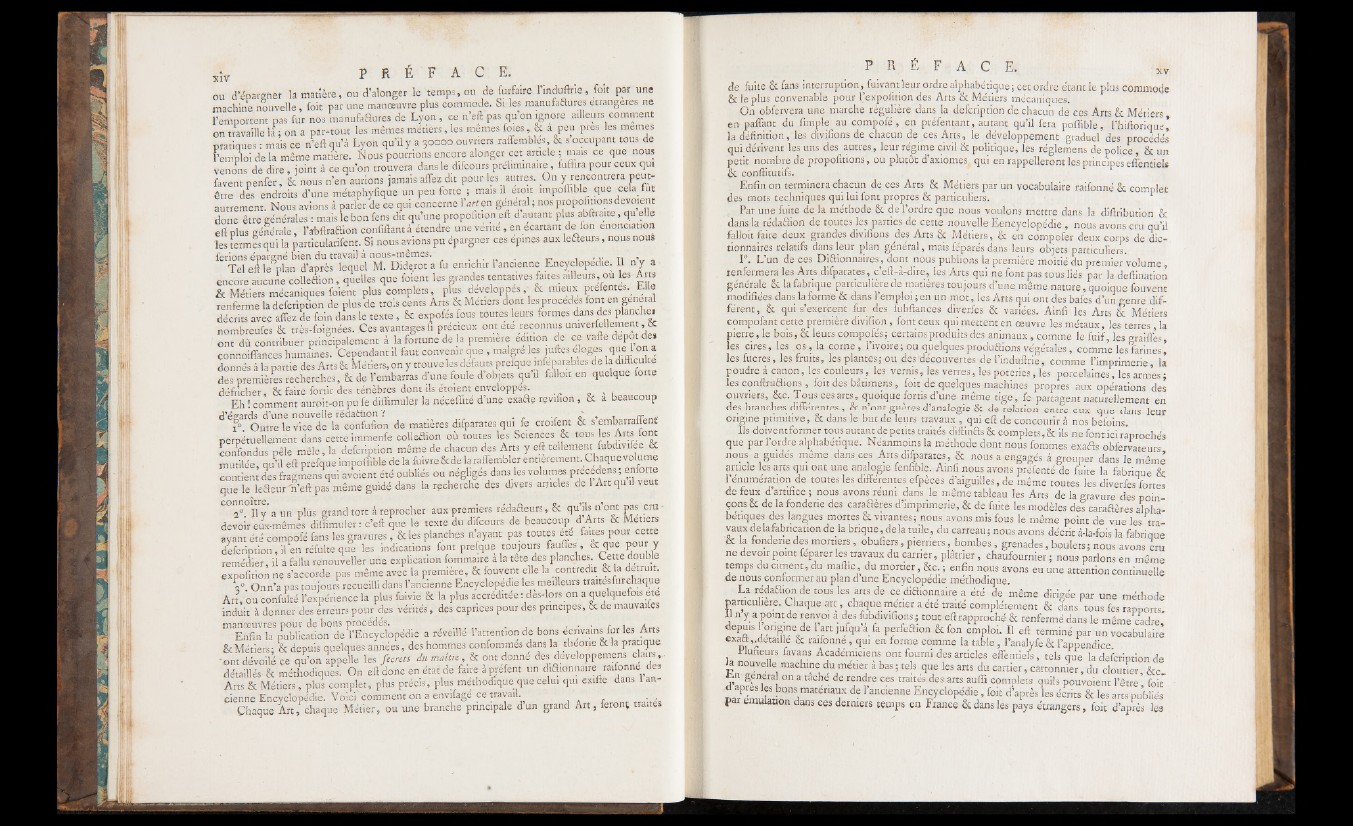 xiv PRÉFACE.
ou d'épargner la matière, ou d'alonger le temps, ou de surfaire l'industrie, soit par une
machine nouvelle, soit par une manœuvre plus commode. Si les manufactures étrangères ne
l'emportent pas sur nos manufactures de Lyon, ce n'est pas qu'on ignore ailleurs comment
on travaille là; on a par-tout les mêmes métiers, les mêmes soies, & à peu près les mêmes
pratiques: mais ce n'est qu'à Lyon qu'il y a 30000 ouvriers rassemblés, & s'occupant tous de
l'emploi de la même matière. Nous pourrions encore alonger cet article; mais ce que nous
venons de dire, joint à ce qu'on trouvera dans le discours préliminaire, suffira pour ceux qui
savent penser, & nous n'en aurions jamais assez dit pour les autres. On y rencontrera peut-
être des endroits d'une métaphysique un peu forte; mais il étoit impossible que cela fût
autrement. Nous avions à parler de ce qui concerne l'art en général; nos propositions devoient
donc être générales: mais le bon sens dit qu'une proposition est d'autant plus abstraite, qu'elle
est plus générale, l'abstraction consistant à étendre une vérité, en écartant de son énonciation
les termes qui la particularisent. Si nous avions pu épargner ces épines aux lecteurs, nous nous
serions épargné bien du travail à nous-mêmes.
Tel est le plan d'après lequel M. Diderot a su enrichir l'ancienne Encyclopédie. Il n'y a
encore aucune collection, quelles que soient les grandes tentatives faites ailleurs, où les Arts
& Métiers mécaniques soient plus complets, plus développés, & mieux présentés. Elle
renferme la description de plus de trois cents Arts & Métiers dont les procédés sont en général
décrits avec assez de soin dans le texte, & exposés sous toutes leurs formes dans des planches
nombreuses & très-soignées. Ces avantages si précieux ont été reconnus universellement, &
ont dû contribuer principalement à la fortune de la première édition de ce vaste dépôt des
connoissances humaines. Cependant il faut convenir que, malgré les justes éloges que l'on a
donnés à la partie des Arts & Métiers, on y trouve les défauts presque inséparables de la difficulté
des premières recherches, & de l'embarras d'une foule d'objets qu'il falloit en quelque sorte
défricher, & faire sortir des ténèbres dont ils étoient enveloppés.
Eh! comment auroit-on pu se dissimuler la nécessité d'une exacte revision, & à beaucoup
d'égards d'une nouvelle rédaction?
1°. Outre le vice de la confusion de matières disparates qui se croisent & s'embarrassent
perpétuellement dans cette immense collection où toutes les Sciences & tous les Arts sont
confondus pêle mêle, la description même de chacun des Arts y est tellement subdivisée &
mutilée, qu'il est presque impossible de la suivre & de la rassembler entièrement. Chaque volume
contient des fragmens qui avoient été oubliés ou négligés dans les volumes précédens; ensorte
que le lecteur n'est pas même guidé dans la recherche des divers articles de l'Art qu'il veut
connoître.
2°. Il y a un plus grand tort à reprocher aux premiers rédacteurs, & qu'ils n'ont pas cru
devoir eux-mêmes dissimuler: c'est que le texte du discours de beaucoup d'Arts & Métiers
ayant été composé sans les gravures, & les planches n'ayant pas toutes été faites pour cette
description, il en résulte que les indications sont presque toujours fausses, & que pour y
remédier, il a fallu renouveller une explication sommaire à la tête des planches. Cette double
exposition ne s'accorde pas même avec la première, & souvent elle la contredit & la détruit.
3°. On n'a pas toujours recueilli dans l'ancienne Encyclopédie les meilleurs traités sur chaque
Art, ou consulté l'expérience la plus suivie & la plus accréditée: dès-lors on a quelquefois été
induit à donner des erreurs pour des vérités, des caprices pour des principes, & de mauvaises
manœuvres pour de bons procédés.
Enfin la publication de l'Encyclopédie a réveillé l'attention de bons écrivains sur les Arts
& Métiers; & depuis quelques années, des hommes consommés dans la théorie & la pratique
ont dévoilé ce qu'on appelle les secrets du maître, & ont donné des développemens clairs,
détaillés & méthodiques. On est donc en état de faire à présent un dictionnaire raisonné des
Arts & Métiers, plus complet, plus précis, plus méthodique que celui qui existe dans l'an-
cienne Encyclopédie. Voici comment on a envisagé ce travail.
Chaque Art, chaque Métier, ou une branche principale d'un grand Art, seront traités
PRÉFACE. xv
de suite & sans interruption, suivant leur ordre alphabétique; cet ordre étant le plus commode
& le plus convenable pour l'exposition des Arts & Métiers mécaniques.
On observera une marche régulière dans la description de chacun de ces Arts & Métiers,
en passant du simple au composé, en présentant, autant qu'il sera possible, l'historique,
la définition, les divisions de chacun de ces Arts, le développement graduel des procédés
qui dérivent les uns des autres, leur régime civil & politique, les réglemens de police, & un
petit nombre de propositions, ou plutôt d'axiomes qui en rappelleront les principes essentiels
& constitutifs.
Enfin on terminera chacun de ces Arts & Métiers par un vocabulaire raisonné & complet
des mots techniques qui lui sont propres & particuliers.
Par une suite de la méthode & de l'ordre que nous voulons mettre dans la distribution &
dans la rédaction de toutes les parties de cette nouvelle Encyclopédie, nous avons cru qu'il
falloit faire deux grandes divisions des Arts & Métiers, & en composer deux corps de dic-
tionnaires relatifs dans leur plan général, mais séparés dans leurs objets particuliers.
1°. L'un de ces Dictionnaires, dont nous publions la première moitié du premier volume,
renfermera les Arts disparates, c'est-à-dire, les Arts qui ne sont pas tous liés par la destination
générale & la fabrique particulière de matières toujours d'une même nature, quoique souvent
modifiées dans la forme & dans l'emploi; en un mot, les Arts qui ont des bases d'un genre dif-
férent, & qui s'exercent sur des substances diverses & variées. Ainsi les Arts & Métiers
composant cette première division, sont ceux qui mettent en œuvre les métaux, les terres, la
pierre, le bois, & leurs composés; certains produits des animaux, comme le suif, les graisses,
les cires, les os, la corne, l'ivoire; ou quelques productions végétales, comme les farines,
les sucres, les fruits, les plantes; ou des découvertes de l'industrie, comme l'imprimerie, la
poudre à canon, les couleurs, les vernis, les verres, les poteries, les porcelaines, les armes;
les constructions, soit des bâtimens, soit de quelques machines propres aux opérations des
ouvriers, &c. Tous ces arts, quoique sortis d'une même tige, se partagent naturellement en
des branches différentes, & n'ont guères d'analogie & de relation entre eux que dans leur
origine primitive, & dans le but de leurs travaux, qui est de concourir à nos besoins.
Ils doivent former tous autant de petits traités distincts & complets, & ils ne sont ici raprochés
que par l'ordre alphabétique. Néanmoins la méthode dont nous sommes exacts observateurs,
nous a guidés même dans ces Arts disparates, & nous a engagés à grouper dans le même
article les arts qui ont une analogie sensible. Ainsi nous avons présenté de suite la fabrique &
l'énumération de toutes les différentes espèces d'aiguilles, de même toutes les diverses sortes
de feux d'artifice; nous avons réuni dans le même tableau les Arts de la gravure des poin-
çons & de la fonderie des caractères d'imprimerie, & de suite les modèles des caractères alpha-
bétiques des langues mortes & vivantes; nous avons mis sous le même point de vue les tra-
vaux de la fabrication de la brique, de la tuile, du carreau; nous avons décrit à-la-fois la fabrique
& la fonderie des mortiers, obusiers, pierriers, bombes, grenades, boulets; nous avons cru
ne devoir point séparer les travaux du carrier, plâtrier, chaufournier; nous parlons en même
temps du ciment, du mastic, du mortier, &c.; enfin nous avons eu une attention continuelle
de nous conformer au plan d'une Encyclopédie méthodique.
La rédaction de tous les arts de ce dictionnaire a été de même dirigée par une méthode
particulière. Chaque art, chaque métier a été traité complétement & dans tous ses rapports.
Il n'y a point de renvoi à des subdivisions; tout est rapproché & renfermé dans le même cadre,
depuis l'origine de l'art jusqu'à sa perfection & son emploi. Il est terminé par un vocabulaire
exact, détaillé & raisonné, qui en forme comme la table, l'analyse & l'appendice.
Plusieurs savans Académiciens ont fourni des articles essentiels, tels que la description de
la nouvelle machine du métier à bas; tels que les arts du cartier, cartonnier, du cloutier, &c.
En général on a tâché de rendre ces traités des arts aussi complets qu'ils pouvoient l'être, soit
d'après les bons matériaux de l'ancienne Encyclopédie, soit d'après les écrits & les arts publiés
par émulation dans ces derniers temps en France & dans les pays étrangers, soit d'après les